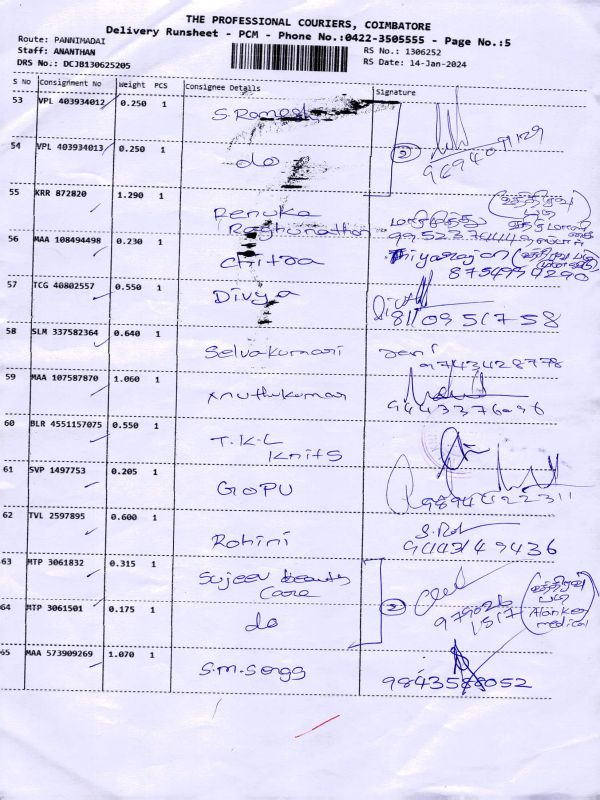 THE PROFESSIONAL COURIERS, COIMBATORE
Delivery Runsheet - PCM - Phone No.:0422-3505555 - Page No.:5
Route: PANNIMADAI
Staff: ANANTHAN
DRS No.: DCJ8130625205
RS No.: 1306252
RS Date: 14-Jan-2024
S No Consignment No Weight PCS Consignee Details Signature
53 VPL 403934012 0.250 1 S.Ramesh
54 VPL 403934013 0.250 1 do 2
55 KRR 872820 1.290 1 Renuka
Raghunathan
56 MAA 108494498 0.230 1 Chitra Thiyagarajan
8754954290
57 TCG 40802557 0.550 1 Divya
8110951758
58 SLM 337582364 0.640 1 Selvakumari Jeni
9743428778
59 MAA 107587870 1.060 1 muthukumar
9443376096
60 BLR 4551157075 0.550 1 T.K.L
Knits
61 SVP 1497753 0.205 1 GOPU
62 TVL 2597895 0.600 1 Rohini
9443149436
63 MTP 3061832 0.315 1 Sujeev beauty
Care
64 MTP 3061501 0.175 1 do 2
medical
65 MAA 573909269 1.070 1 S.M.Sengg
9843588052